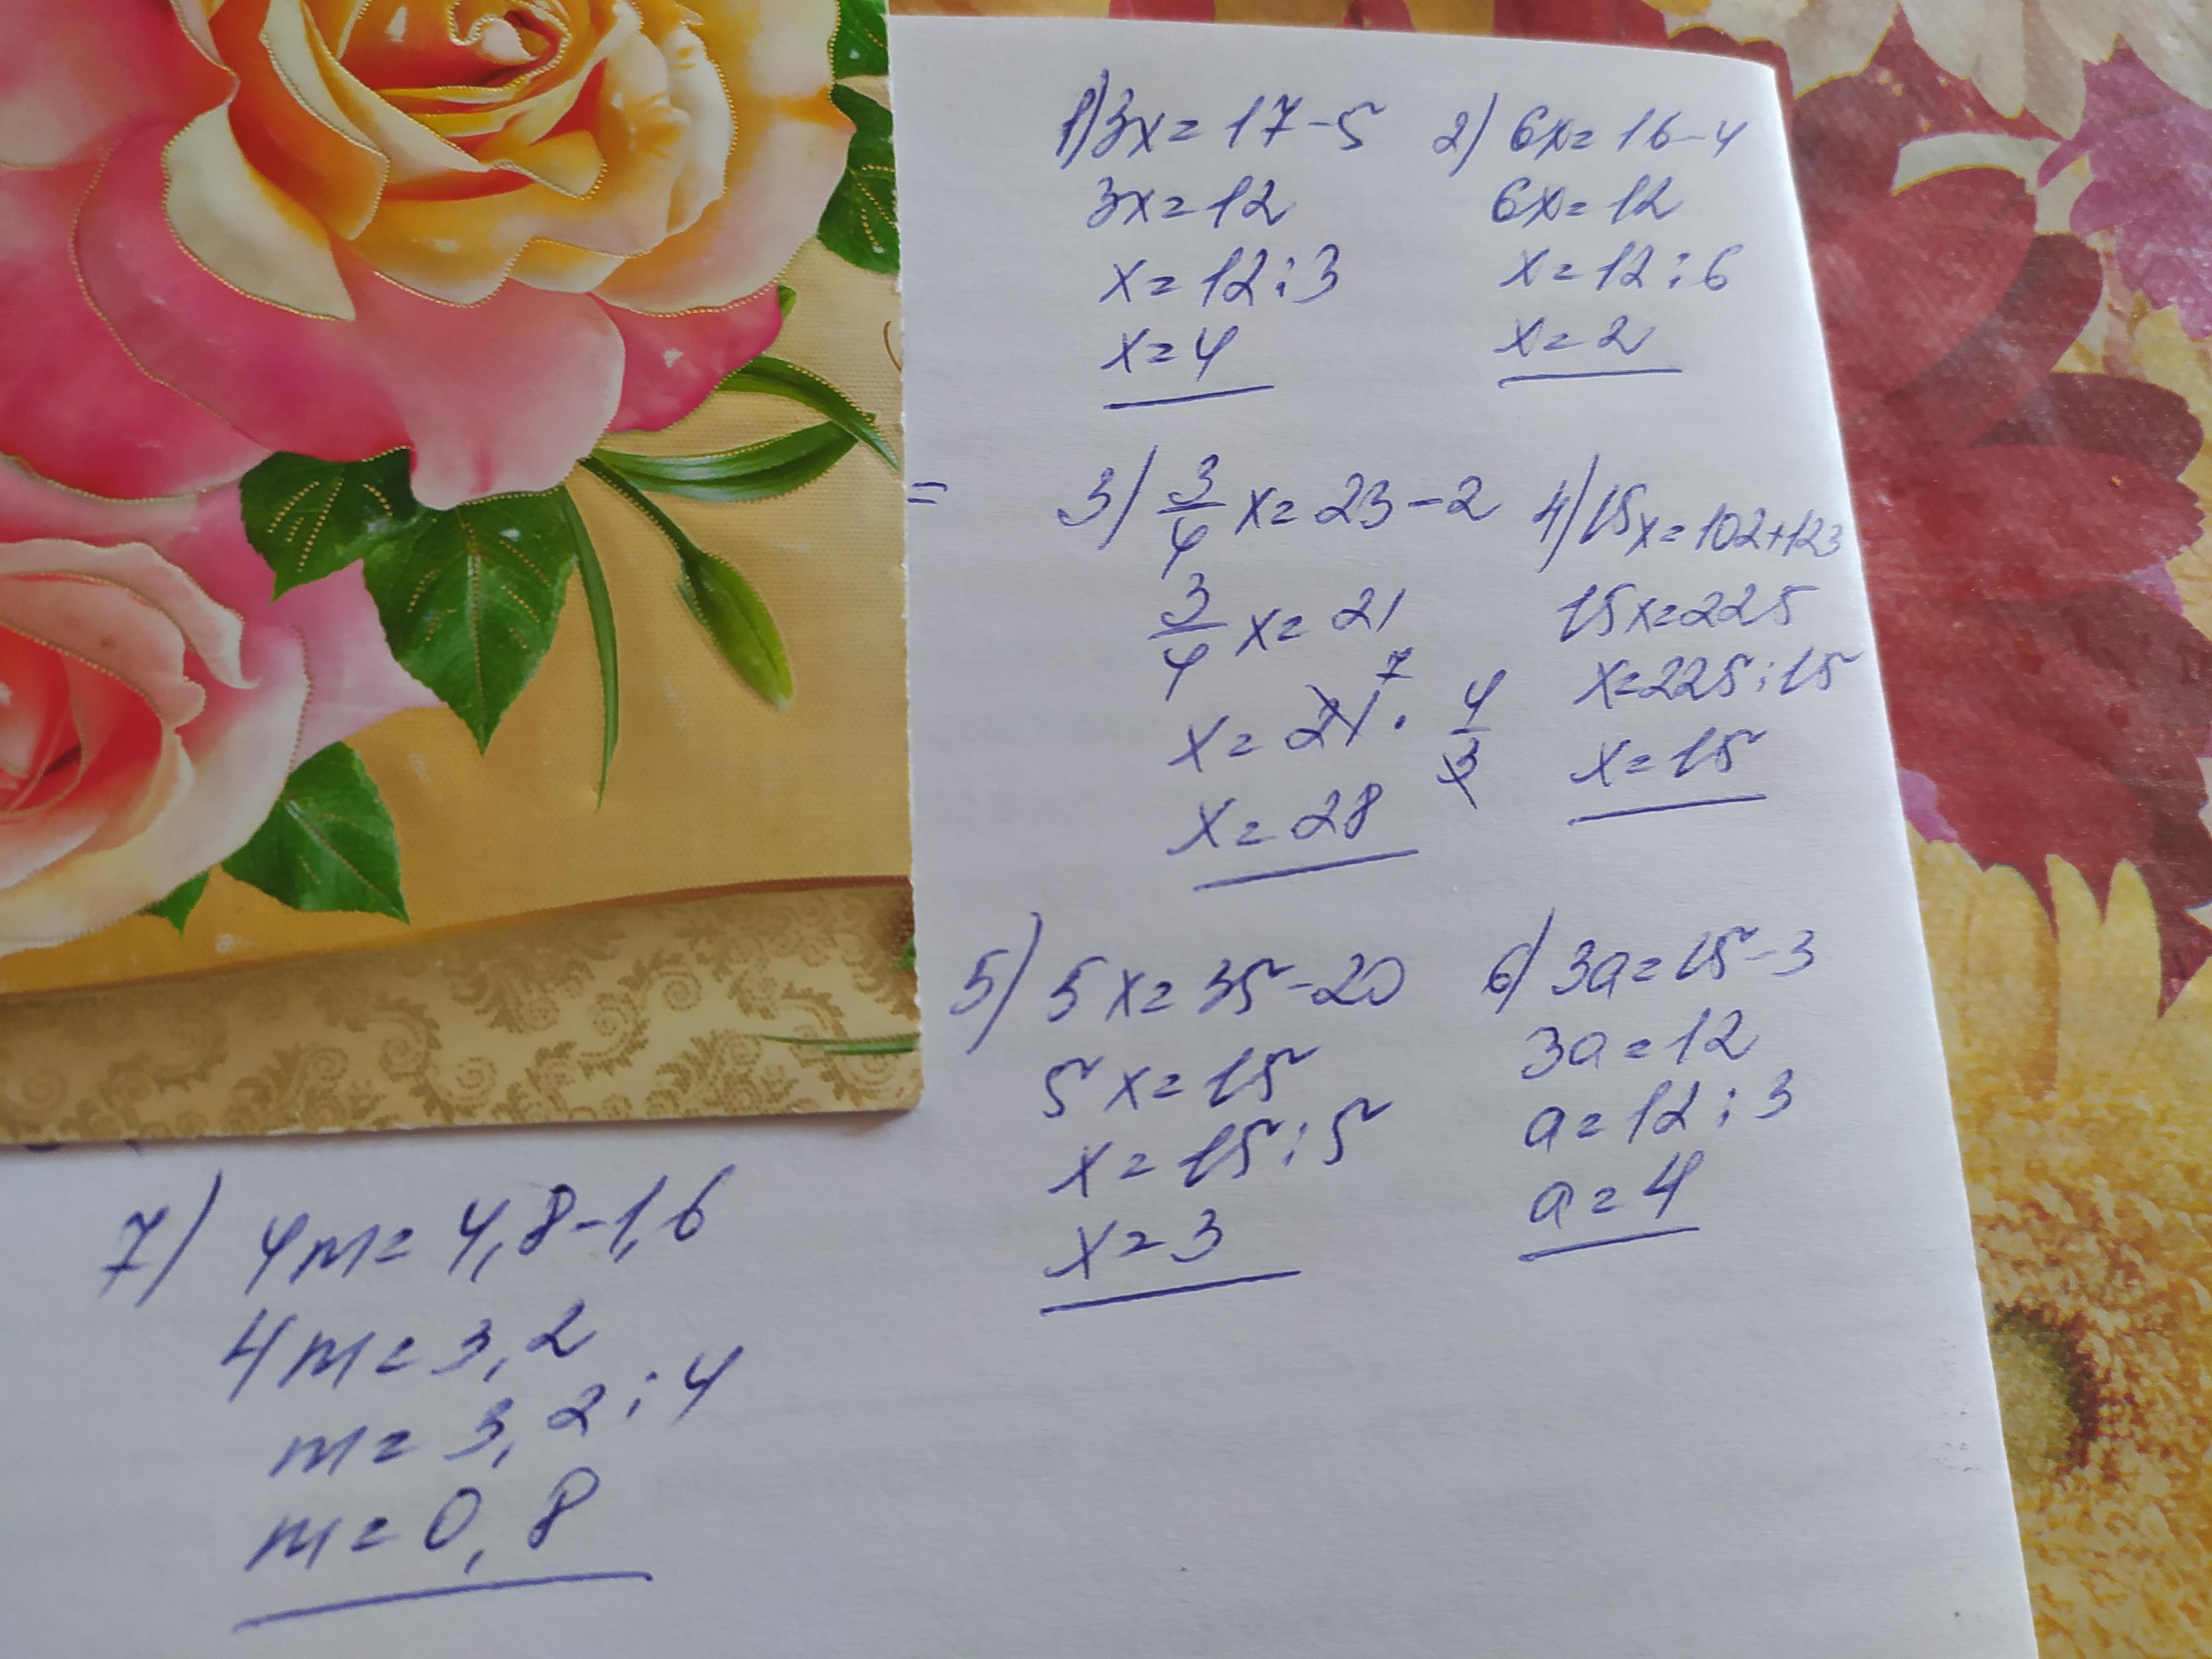 1) 3x = 17 - 5
3x = 12
x = 12 : 3
x = 4
2) 6x = 16 - 4
6x = 12
x = 12 : 6
x = 2
=
3) 3/4 x = 23 - 2
3/4 x = 21
x = 21 7 · 4/3
x = 28
4) 15x = 102 + 123
15x = 225
x = 225 : 15
x = 15
5) 5x = 35 - 20
5x = 15
x = 15 : 5
x = 3
6) 3a = 15 - 3
3a = 12
a = 12 : 3
a = 4
7) 4m = 4,8 - 1,6
4m = 3,2
m = 3,2 : 4
m = 0,8